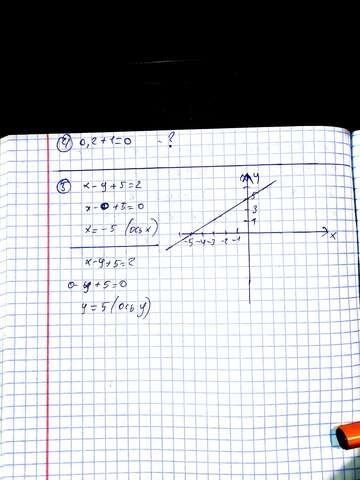 ② 0,2+1=0 - ?
③ x-y+5=2
x-0+5=0
x=-5 (ось x)
x-y+5=2
0-y+5=0
y=5 (ось y)
y
5
3
1
-5 -4 -3 -2 -1
x